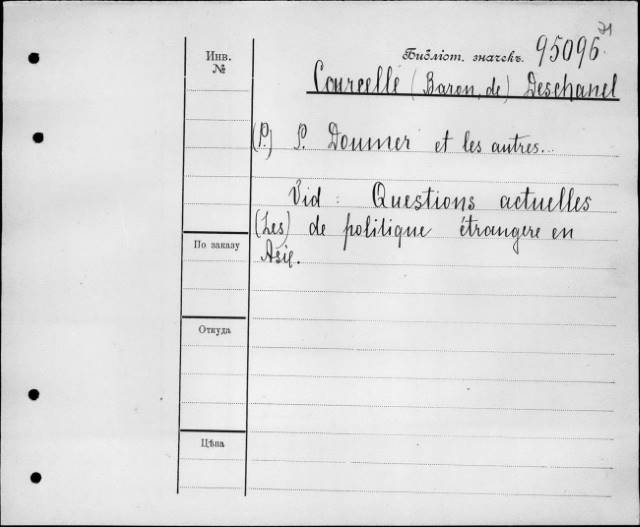 Инв.
№
Библіот. значекъ. 95096
Courcelle (Baron, de) Deschanel
(P.) P. Doumer et les autres...
Vid : Questions actuelles
(Les) de politique étrangere en
Asie.
По заказу
Откуда
Цѣна